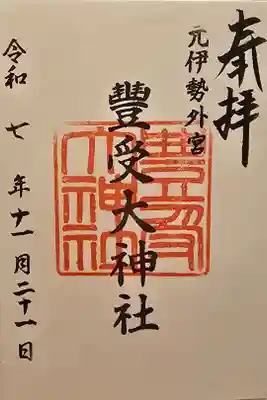 奉拝
元伊勢外宮
豐受大神社
豊受大神社
令和七年十一月二十一日